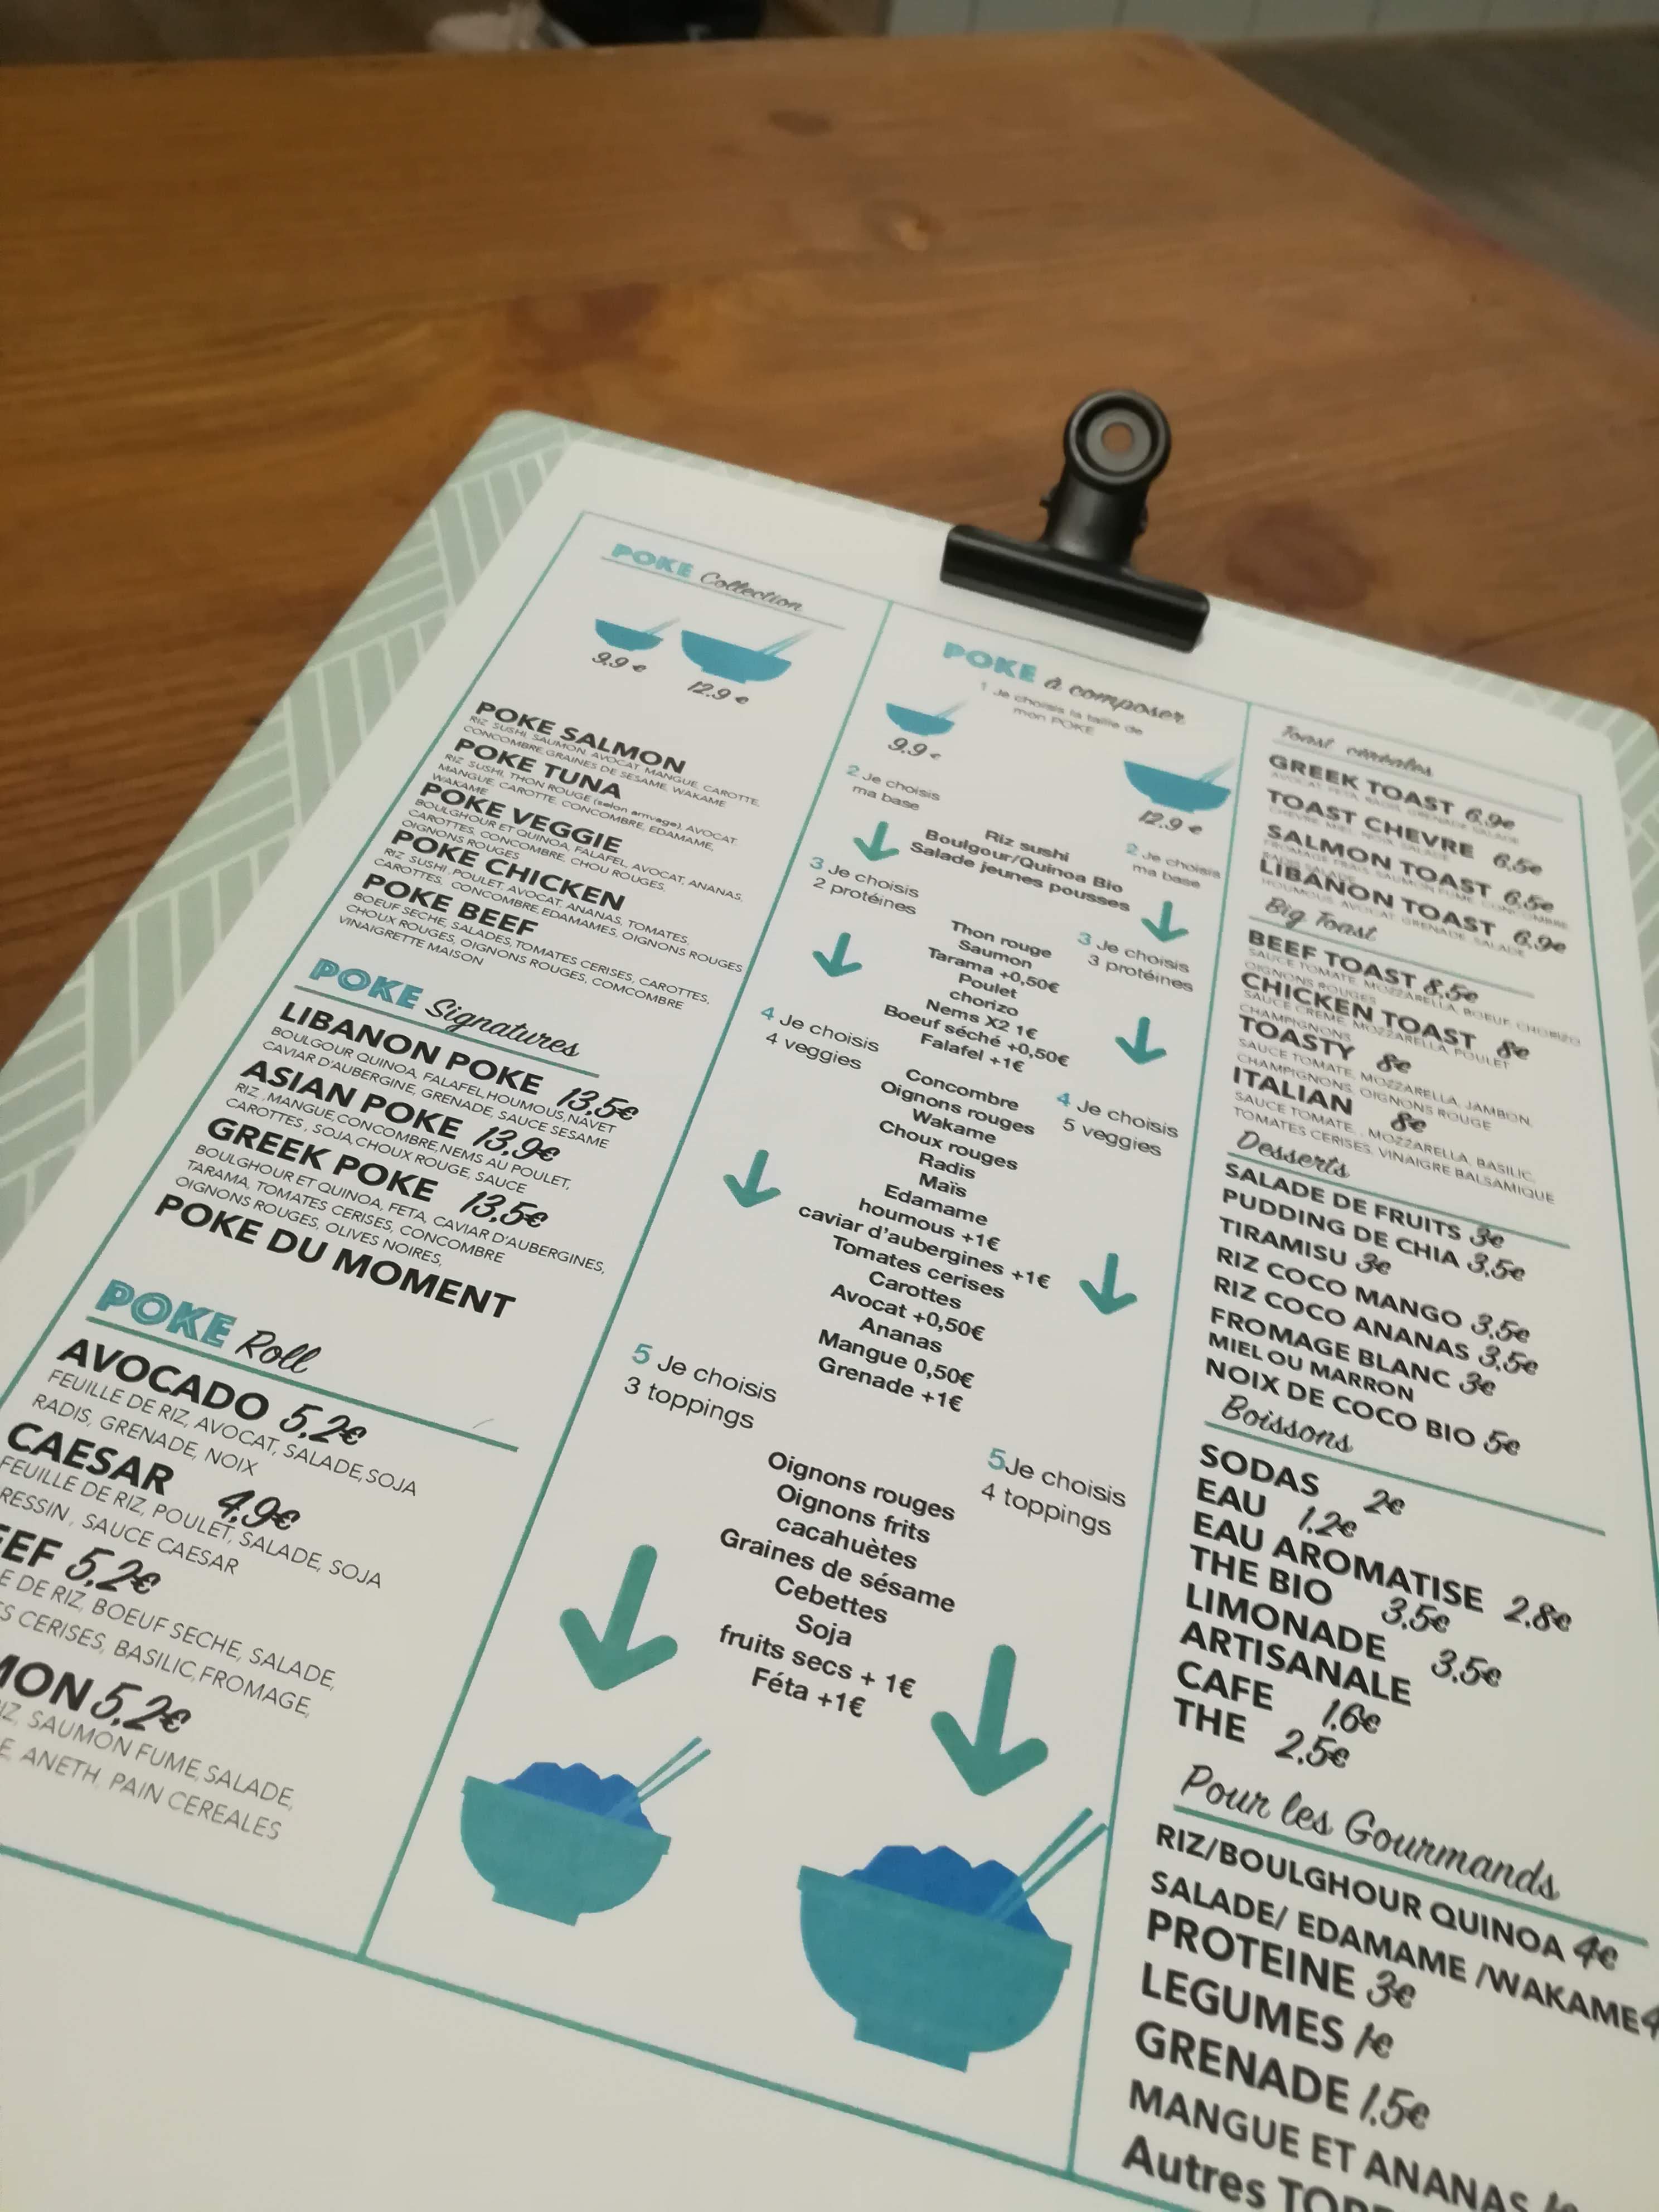 POKE Collection
9.9 € 12.9 €
POKE SALMON
RIZ SUSHI, SAUMON, AVOCAT, MANGUE, CAROTTE,
CONCOMBRE, GRAINES DE SESAME, WAKAME
POKE TUNA
RIZ SUSHI, THON ROUGE (selon arrivage), AVOCAT
MANGUE, CAROTTE, CONCOMBRE, EDAMAME,
WAKAME
POKE VEGGIE
BOULGHOUR ET QUINOA, FALAFEL, AVOCAT, ANANAS,
CAROTTES, CONCOMBRE, CHOU ROUGES,
OIGNONS ROUGES
POKE CHICKEN
RIZ SUSHI, POULET, AVOCAT, ANANAS, TOMATES,
CAROTTES, CONCOMBRE, EDAMAMES, OIGNONS ROUGES
POKE BEEF
BOEUF SECHE, SALADES, TOMATES CERISES, CAROTTES,
CHOUX ROUGES, OIGNONS ROUGES, COMCOMBRE
VINAIGRETTE MAISON
POKE Signatures
LIBANON POKE 13,5€
BOULGOUR QUINOA, FALAFEL, HOUMOUS, NAVET
CAVIAR D'AUBERGINE, GRENADE, SAUCE SESAME
ASIAN POKE 13,9€
RIZ , MANGUE, CONCOMBRE, NEMS AU POULET,
CAROTTES , SOJA, CHOUX ROUGE, SAUCE
GREEK POKE 13,5€
BOULGHOUR ET QUINOA, FETA, CAVIAR D'AUBERGINES,
TARAMA, TOMATES CERISES, CONCOMBRE
OIGNONS ROUGES, OLIVES NOIRES,
POKE DU MOMENT
POKE Roll
AVOCADO 5,2€
FEUILLE DE RIZ, AVOCAT, SALADE, SOJA
RADIS, GRENADE, NOIX
CAESAR 4,9€
FEUILLE DE RIZ, POULET, SALADE, SOJA
RESSIN, SAUCE CAESAR
EF 5,2€
E DE RIZ, BOEUF SECHE, SALADE,
S CERISES, BASILIC, FROMAGE,
MON 5,2€
IZ, SAUMON FUME, SALADE,
E, ANETH, PAIN CEREALES
POKE à composer
1 Je choisis la taille de
mon POKE
9.9 €
12.9 €
2 Je choisis
ma base
Riz sushi
Boulgour/Quinoa Bio
Salade jeunes pousses
2 Je choisis
ma base
3 Je choisis
2 protéines
Thon rouge
Saumon
Tarama +0,50€
Poulet
chorizo
Nems X2 1€
Boeuf séché +0,50€
Falafel +1€
3 Je choisis
3 protéines
4 Je choisis
4 veggies
Concombre
Oignons rouges
Wakame
Choux rouges
Radis
Maïs
Edamame
houmous +1€
caviar d'aubergines +1€
Tomates cerises
Carottes
Avocat +0,50€
Ananas
Mangue 0,50€
Grenade +1€
4 Je choisis
5 veggies
5 Je choisis
3 toppings
Oignons rouges
Oignons frits
cacahuètes
Graines de sésame
Cebettes
Soja
fruits secs + 1€
Féta +1€
5Je choisis
4 toppings
Toast céréales
GREEK TOAST 6,9€
TOAST CHEVRE 6,5€
CHEVRE, MIEL, NOIX, SALADE
SALMON TOAST 6,5€
FROMAGE FRAIS, SAUMON FUME, CONCOMBRE
LIBANON TOAST 6,9€
HOUMOUS, AVOCAT, GRENADE, SALADE
Big Toast
BEEF TOAST 8,5€
SAUCE TOMATE, MOZZARELLA, BOEUF, CHORIZO
OIGNONS ROUGES
CHICKEN TOAST 8€
SAUCE CREME, MOZZARELLA, POULET
CHAMPIGNONS
TOASTY 8€
SAUCE TOMATE, MOZZARELLA, JAMBON,
CHAMPIGNONS, OIGNONS ROUGE
ITALIAN 8€
SAUCE TOMATE , MOZZARELLA, BASILIC,
TOMATES CERISES, VINAIGRE BALSAMIQUE
Desserts
SALADE DE FRUITS 3€
PUDDING DE CHIA 3,5€
TIRAMISU 3€
RIZ COCO MANGO 3,5€
RIZ COCO ANANAS 3,5€
FROMAGE BLANC 3€
MIEL OU MARRON
NOIX DE COCO BIO 5€
Boissons
SODAS 2€
EAU 1.2€
EAU AROMATISE 2.8€
THE BIO 3.5€
LIMONADE 3.5€
ARTISANALE
CAFE 1.6€
THE 2.5€
Pour les Gourmands
RIZ/BOULGHOUR QUINOA 4€
SALADE/ EDAMAME /WAKAME 4
PROTEINE 3€
LEGUMES 1€
GRENADE 1.5€
MANGUE ET ANANAS 1€
Autres